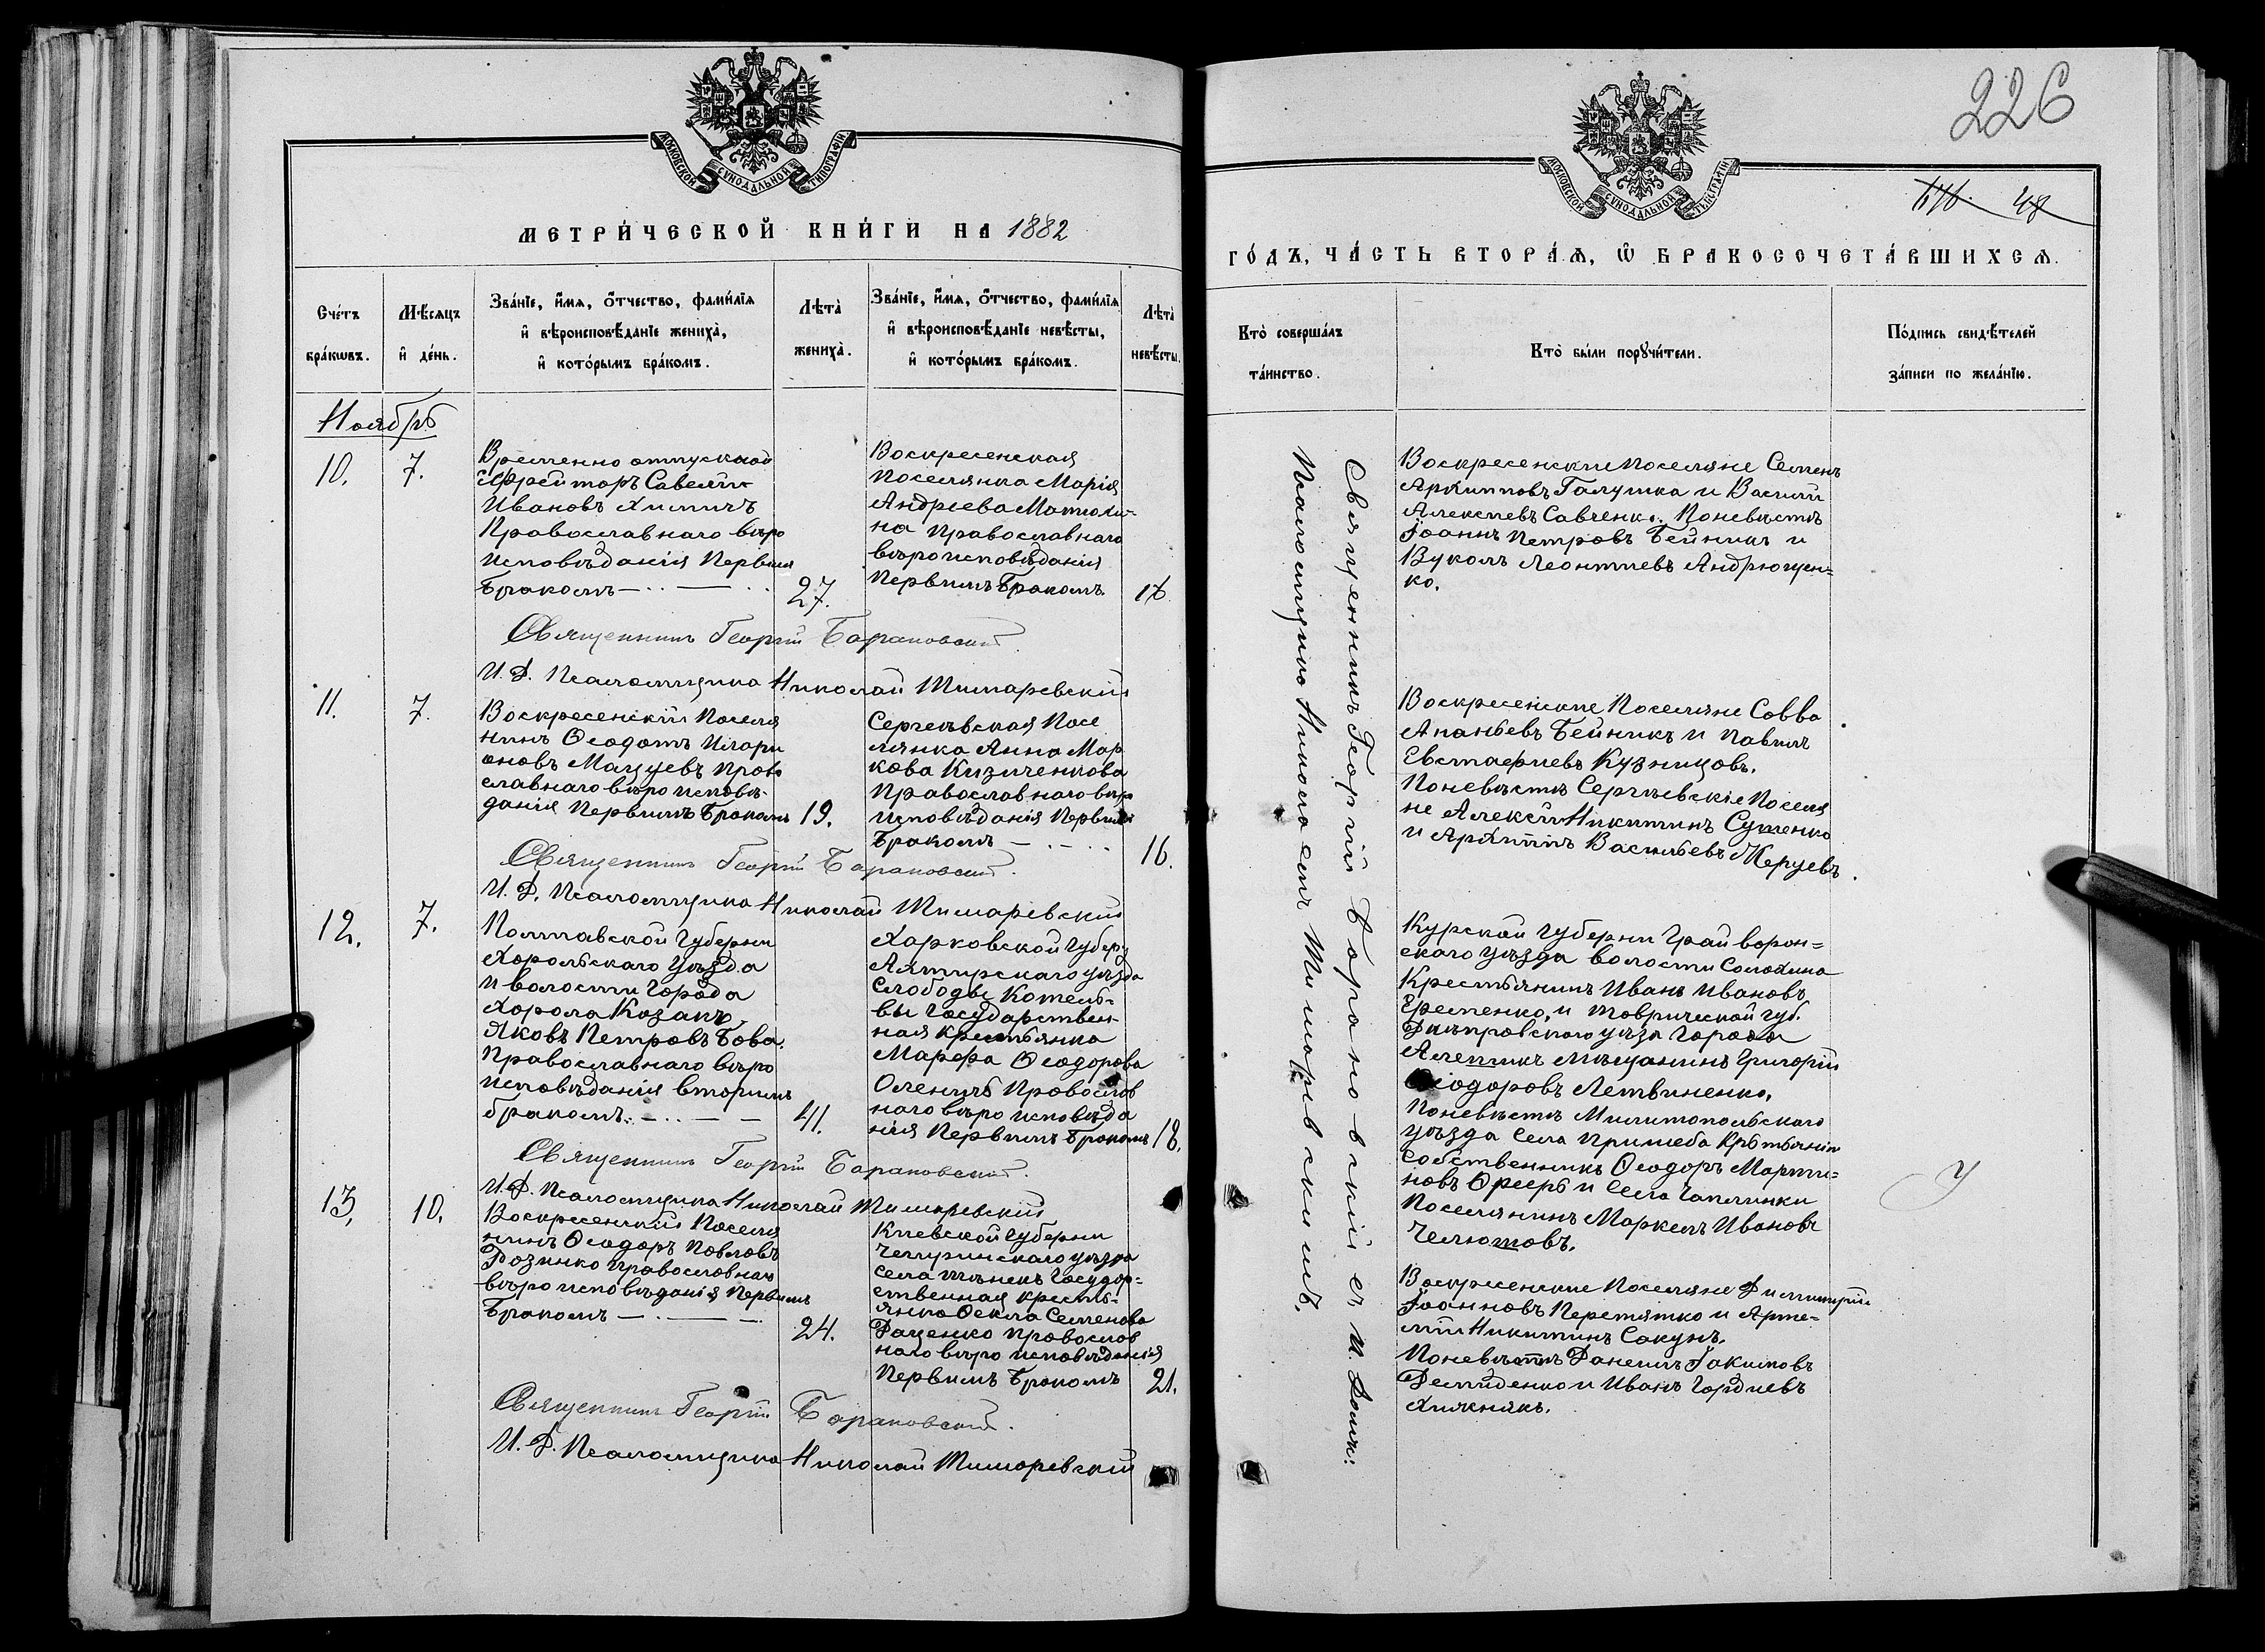 МОСКОВСКОЙ СѴНОДАЛЬНОЙ ТИПОГРАФІИ
МЕТРИ́ЧЕСКОЙ КНИ́ГИ НА 1882
Сче́тъ бра́кѡвъ.
Мѣ́сяцъ и҆ де́нь.
Зва́нїе, и҆́мѧ, ѻ҆́тчество, фами́лїѧ
и҆ вѣроисповѣ́данїе жениха̀,
и҆ кото́рымъ бра́комъ.
Лѣта̀ жениха̀.
Зва́нїе, и҆́мѧ, ѻ҆́тчество, фами́лїѧ
и҆ вѣроисповѣ́данїе невѣ́сты,
и҆ кото́рымъ бра́комъ.
Лѣта̀ невѣ́сты.
Ноябрь
10.
7.
Временно отпускной
Ефрейторъ Савелій
Ивановъ Химичъ
Православнаго вѣро
исповѣданія Первымъ
Бракомъ
27.
Воскресенская
Поселянка Марія
Андреева Матюхи-
на Православнаго
вѣроисповѣданія
Первымъ Бракомъ.
Священникъ Георгій Барановскій.
И. Д. Псаломщика Николай Тимаревскій
11.
7.
Воскресенскій Поселя
нинъ Ѳеодотъ Илари
оновъ Мацуевъ Право
славнаго вѣро исповѣ-
данія Первымъ Бракомъ
19.
Сергѣевская Посе
лянка Анна Мар
кова Кизиченкова
Православнаго вѣро
исповѣданія Первымъ
Бракомъ
16.
Священникъ Георгій Барановскій.
И. Д. Псаломщика Николай Тимаревскій
12.
7.
Полтавской Губерніи
Хорольскаго Уѣзда
и волости Города
Хорола Козакъ
Яковъ Петровъ Бова.
Православнаго вѣро
исповѣданія вторымъ
бракомъ.
41.
Харковской Губер
Ахтирскаго уѣзда
Слободы Котель-
вы Государствен-
ная крестьянка
Марфа Ѳеодорова
Оленичъ Провослов
наго вѣро исповѣда
нія Первымъ Бракомъ
18.
Священникъ Георгій Барановскій.
И. Д. Псаломщика Николай Тимаревскій
13.
10.
Воскресенскій Поселя
нинъ Ѳеодоръ Повловъ
Розинко православнаго
вѣро исповѣданія Первымъ
Бракомъ
24.
Кіевской Губерніи
Чегиринскаго уѣзда
Села Государ-
ственная кресть-
янка Ѳекла Семенова
Даценко провослов
наго вѣро исповѣданія
Первымъ Бракомъ
21.
Священникъ Георгій Барановскій.
И. Д. Псаломщика Николай Тимаревскій
226
МОСКОВСКОЙ СѴНОДАЛЬНОЙ ТИПОГРАФІИ
48
ГО́ДЪ, ЧА́СТЬ ВТОРА́Ѧ, Ѡ҆ БРАКОСОЧЕТА́ВШИХСѦ.
Кто̀ соверша́лъ та́инство.
Кто̀ бы́ли порꙋчи́тели.
По́дпись свидѣ́телей за́писи по жела́нїю.
Священникъ Георгій Барановскій съ И. Долж:
Псаломщика Николаемъ Тимаревскимъ.
Воскресенскіе Поселяне Семенъ
Архиповъ Галушка и Василій
Алексѣевъ Савченко. Поневѣстѣ
Іоаннъ Петровъ Бейникъ и
Вуколъ Леонтіевъ Андрющен=
ко.
Воскресенскіе Поселяне Совва
Ананьевъ Бейникъ и Павелъ
Евстафіевъ Кузницовъ.
Поневѣстѣ Сергѣевскіе Поселя
не Алексѣй Никитинъ Сутенко
и Архипъ Васильевъ Жерцевъ.
Курской Губерніи Грайворон=
скаго уѣзда волости Солохина
Крестьянинъ Иванъ Ивановъ
Еременко, и Таврической Губ.
Днѣпровскаго уѣзд Города
Алешекъ Мѣщанинъ Григорій
Ѳеодоровъ Летвиненко.
Поневѣстѣ Милитопольскаго
уѣзда Села Пришеба
Собственникъ Ѳеодоръ Марти=
новъ и Села Чаплинки
Поселянинъ Маркелъ Ивановъ
Челютовъ.
Воскресенскіе Поселяне Димитрій
Іоанновъ Перетятко и Арте=
мій Никитинъ Сакунъ.
Поневѣстѣ Данеилъ Іакимовъ
Демиденко и Иванъ Гордіевъ
Хижнякъ.